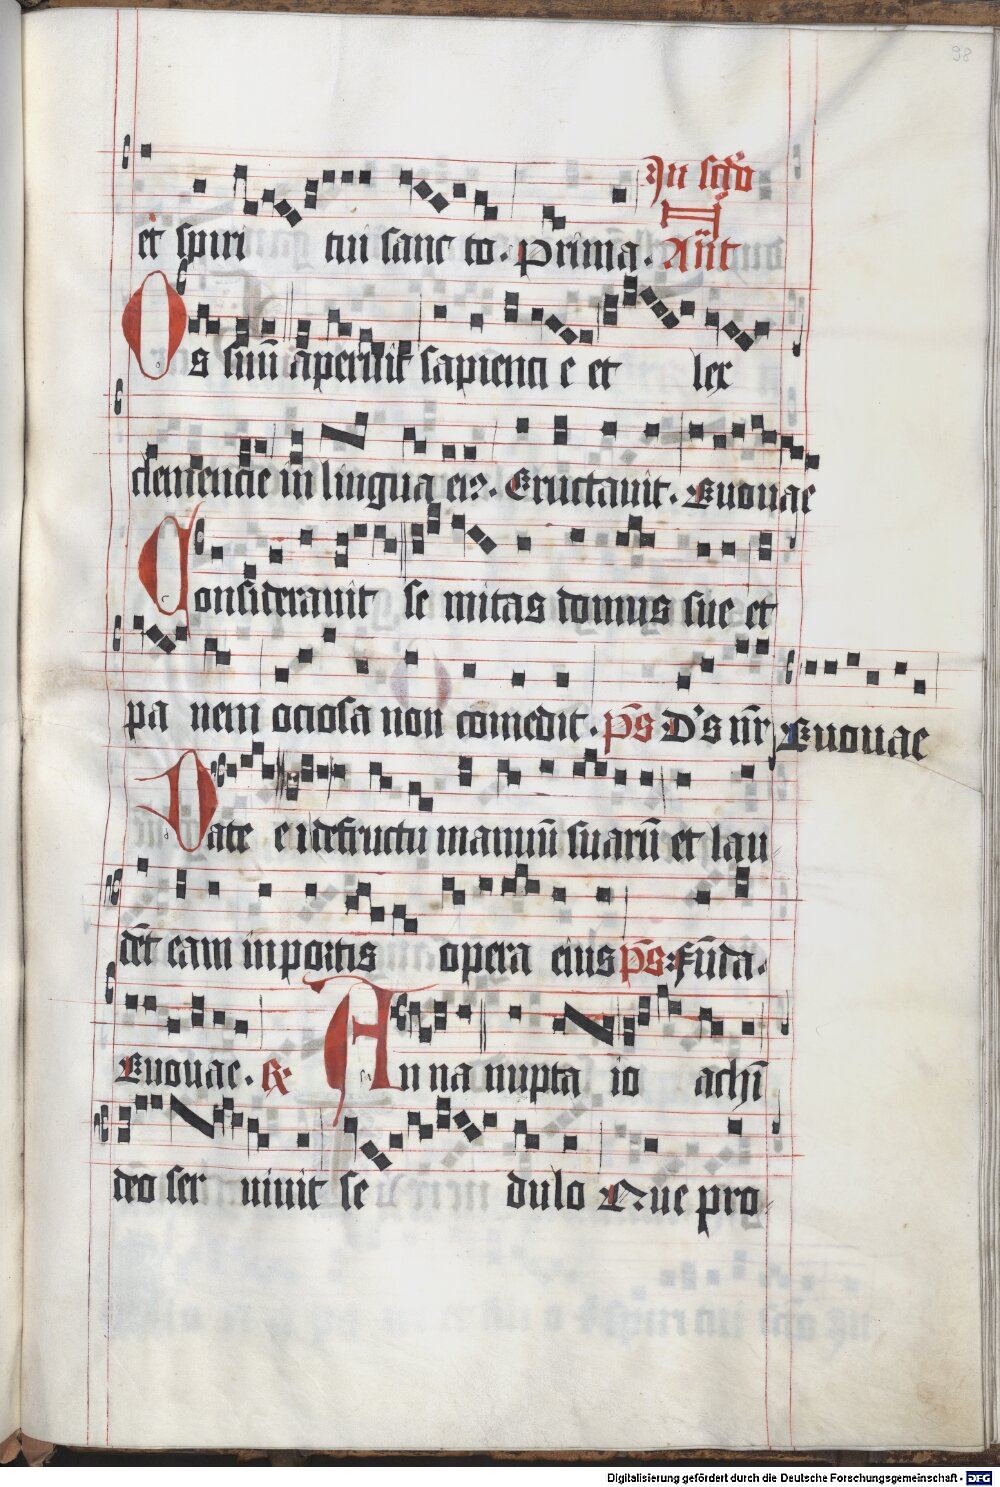 98
In scdo
et spiri tui sanc to. Prima. Ant
Os suū aperuit sapienci e et lex
clemencie in lingua eiꝰ. Eructauit. Euouae
Considerauit se mitas domus sue et
pa nem ociosa non comedit. ps̄ Ds nr̄ Euouae
Date ei de fructu manuū suarū et lau
dēt eam in portis opera eius ps̄ Fūda.
Euouae. ℟ Anna nupta io achī
deo ser uiuit se dulo Que pro
Digitalisierung gefördert durch die Deutsche Forschungsgemeinschaft - DFG